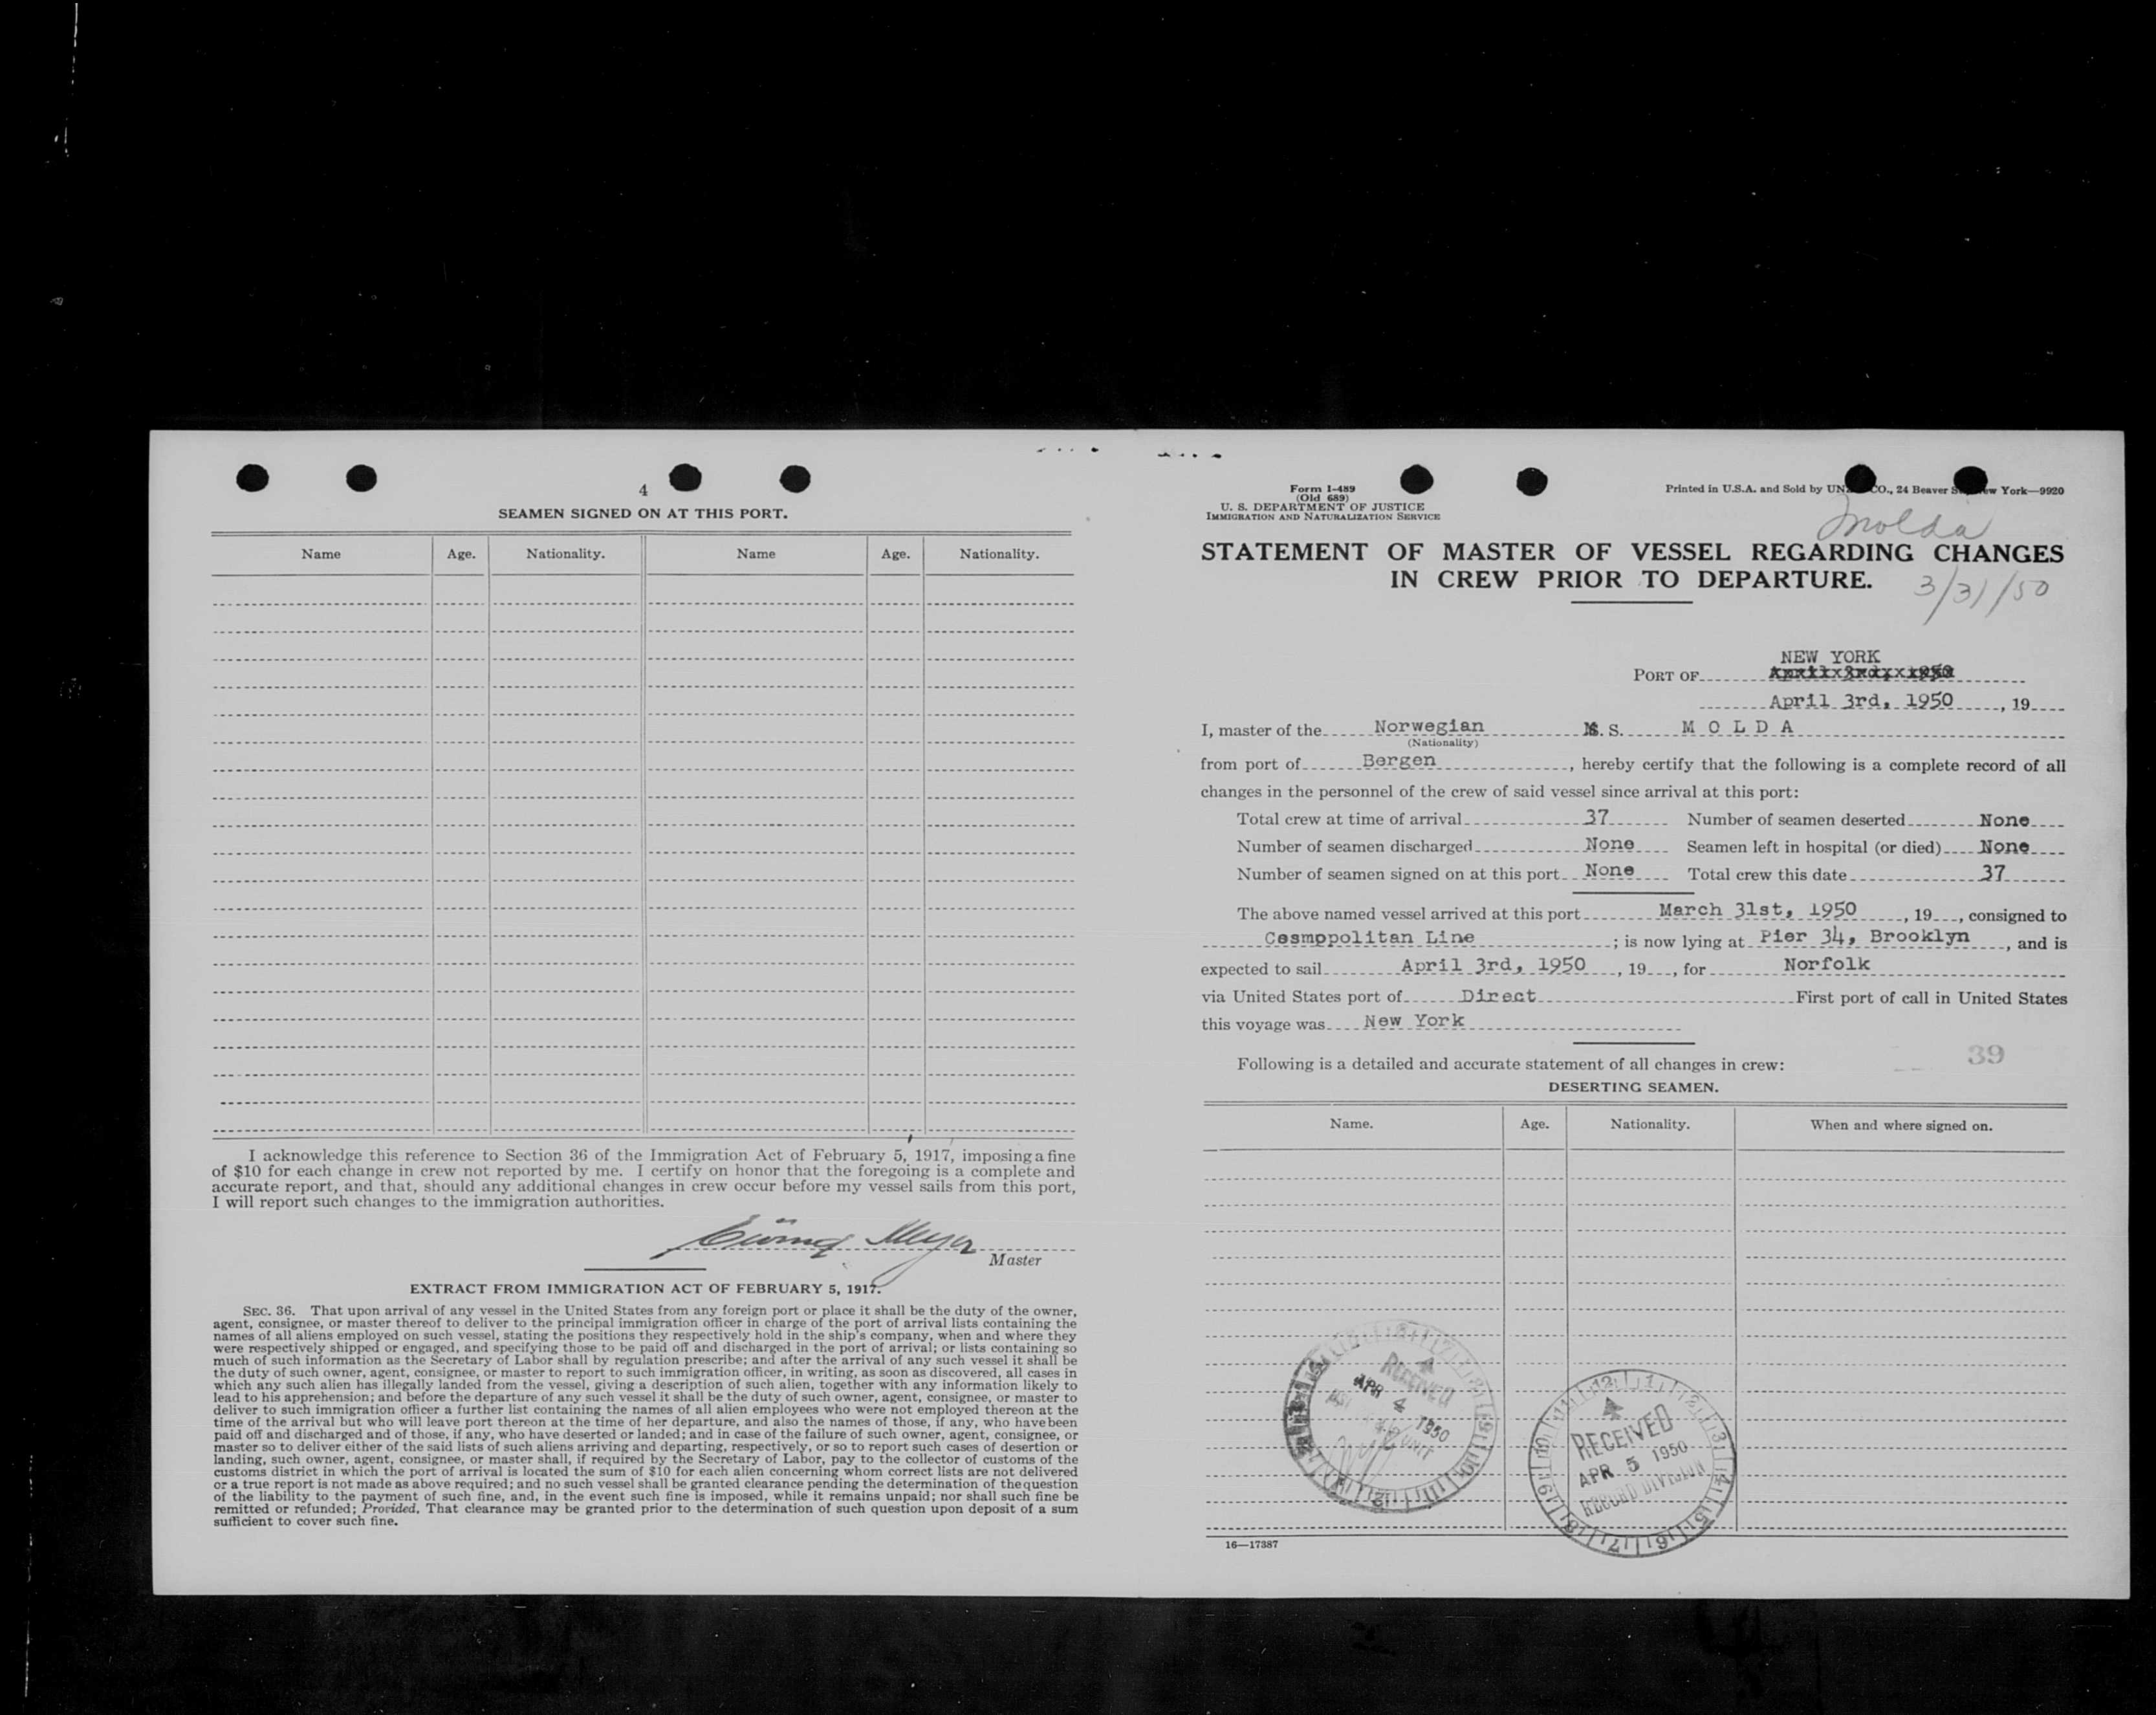 4
SEAMEN SIGNED ON AT THIS PORT.
Name Age. Nationality. Name Age. Nationality.
I acknowledge this reference to Section 36 of the Immigration Act of February 5, 1917, imposing a fine
of $10 for each change in crew not reported by me. I certify on honor that the foregoing is a complete and
accurate report, and that, should any additional changes in crew occur before my vessel sails from this port,
I will report such changes to the immigration authorities.
Meyer
Master
EXTRACT FROM IMMIGRATION ACT OF FEBRUARY 5, 1917.
SEC. 36. That upon arrival of any vessel in the United States from any foreign port or place it shall be the duty of the owner,
agent, consignee, or master thereof to deliver to the principal immigration officer in charge of the port of arrival lists containing the
names of all aliens employed on such vessel, stating the positions they respectively hold in the ship's company, when and where they
were respectively shipped or engaged, and specifying those to be paid off and discharged in the port of arrival; or lists containing so
much of such information as the Secretary of Labor shall by regulation prescribe; and after the arrival of any such vessel it shall be
the duty of such owner, agent, consignee, or master to report to such immigration officer, in writing, as soon as discovered, all cases in
which any such alien has illegally landed from the vessel, giving a description of such alien, together with any information likely to
lead to his apprehension; and before the departure of any such vessel it shall be the duty of such owner, agent, consignee, or master to
deliver to such immigration officer a further list containing the names of all alien employees who were not employed thereon at the
time of the arrival but who will leave port thereon at the time of her departure, and also the names of those, if any, who have been
paid off and discharged and of those, if any, who have deserted or landed; and in case of the failure of such owner, agent, consignee, or
master so to deliver either of the said lists of such aliens arriving and departing, respectively, or so to report such cases of desertion or
landing, such owner, agent, consignee, or master shall, if required by the Secretary of Labor, pay to the collector of customs of the
customs district in which the port of arrival is located the sum of $10 for each alien concerning whom correct lists are not delivered
or a true report is not made as above required; and no such vessel shall be granted clearance pending the determination of the question
of the liability to the payment of such fine, and, in the event such fine is imposed, while it remains unpaid; nor shall such fine be
remitted or refunded; Provided, That clearance may be granted prior to the determination of such question upon deposit of a sum
sufficient to cover such fine.
Form I-489
(Old 689)
U. S. DEPARTMENT OF JUSTICE
IMMIGRATION AND NATURALIZATION SERVICE
Printed in U.S.A. and Sold by CO., 24 Beaver York—9920
Molda
STATEMENT OF MASTER OF VESSEL REGARDING CHANGES
IN CREW PRIOR TO DEPARTURE.
3/31/50
NEW YORK
PORT OF
April 3rd, 1950, 19
I, master of the Norwegian M. S. MOLDA
(Nationality)
from port of Bergen, hereby certify that the following is a complete record of all
changes in the personnel of the crew of said vessel since arrival at this port:
Total crew at time of arrival 37 Number of seamen deserted None
Number of seamen discharged None Seamen left in hospital (or died) None
Number of seamen signed on at this port None Total crew this date 37
The above named vessel arrived at this port March 31st, 1950, 19, consigned to
Cosmopolitan Line; is now lying at Pier 34, Brooklyn, and is
expected to sail April 3rd, 1950, 19, for Norfolk
via United States port of Direct First port of call in United States
this voyage was New York
39
Following is a detailed and accurate statement of all changes in crew:
DESERTING SEAMEN.
Name. Age. Nationality. When and where signed on.
RECEIVED
APR 4 1950
UNIT
RECEIVED
APR 5 1950
RECORD DIVISION
16—17387